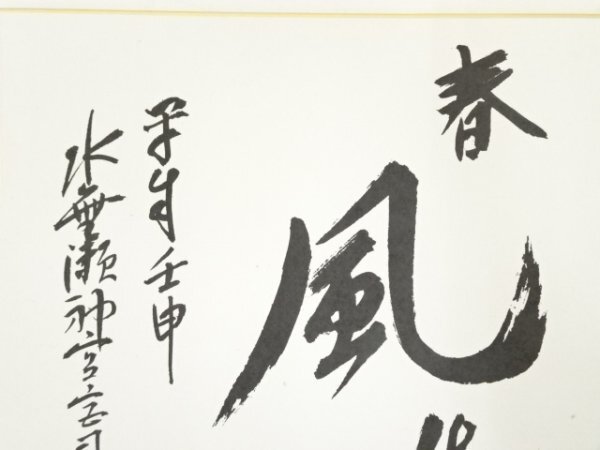 春
風
平成壬申
水無瀬神宮宮司